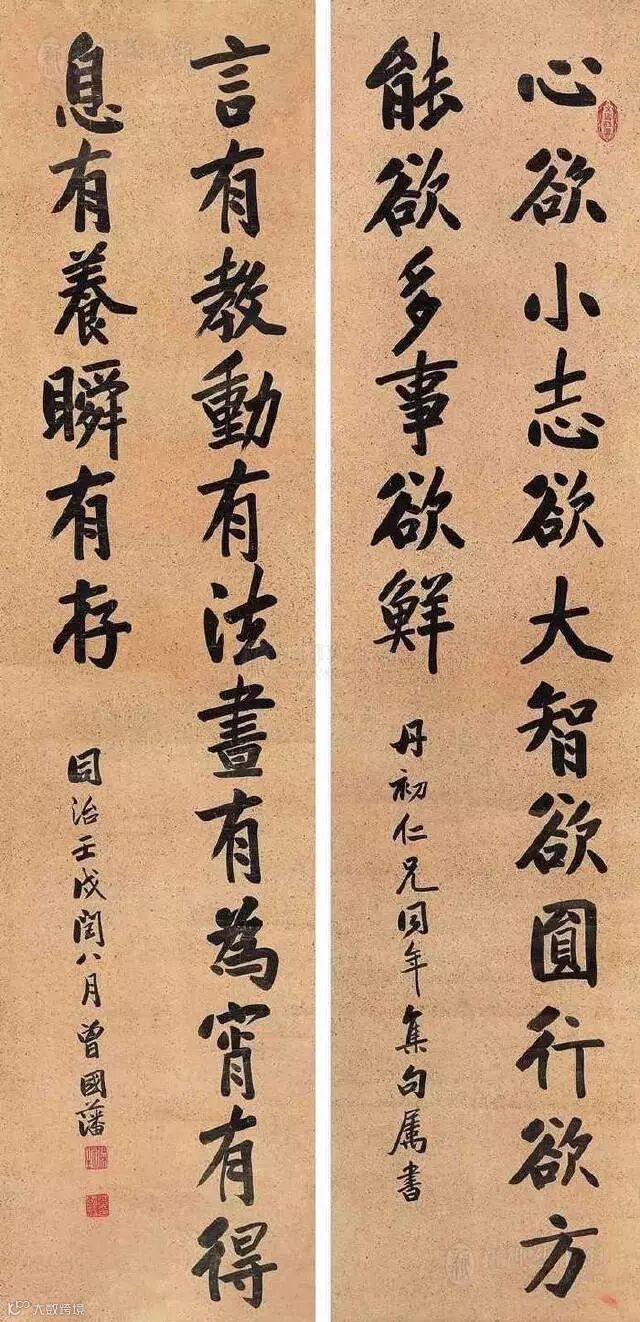 心欲小志欲大智欲圓行欲方
能欲多事欲鮮
丹初仁兄同年集句属書
言有教動有法晝有為宵有得
息有養瞬有存
同治壬戌閏八月曾國藩
大数跨境